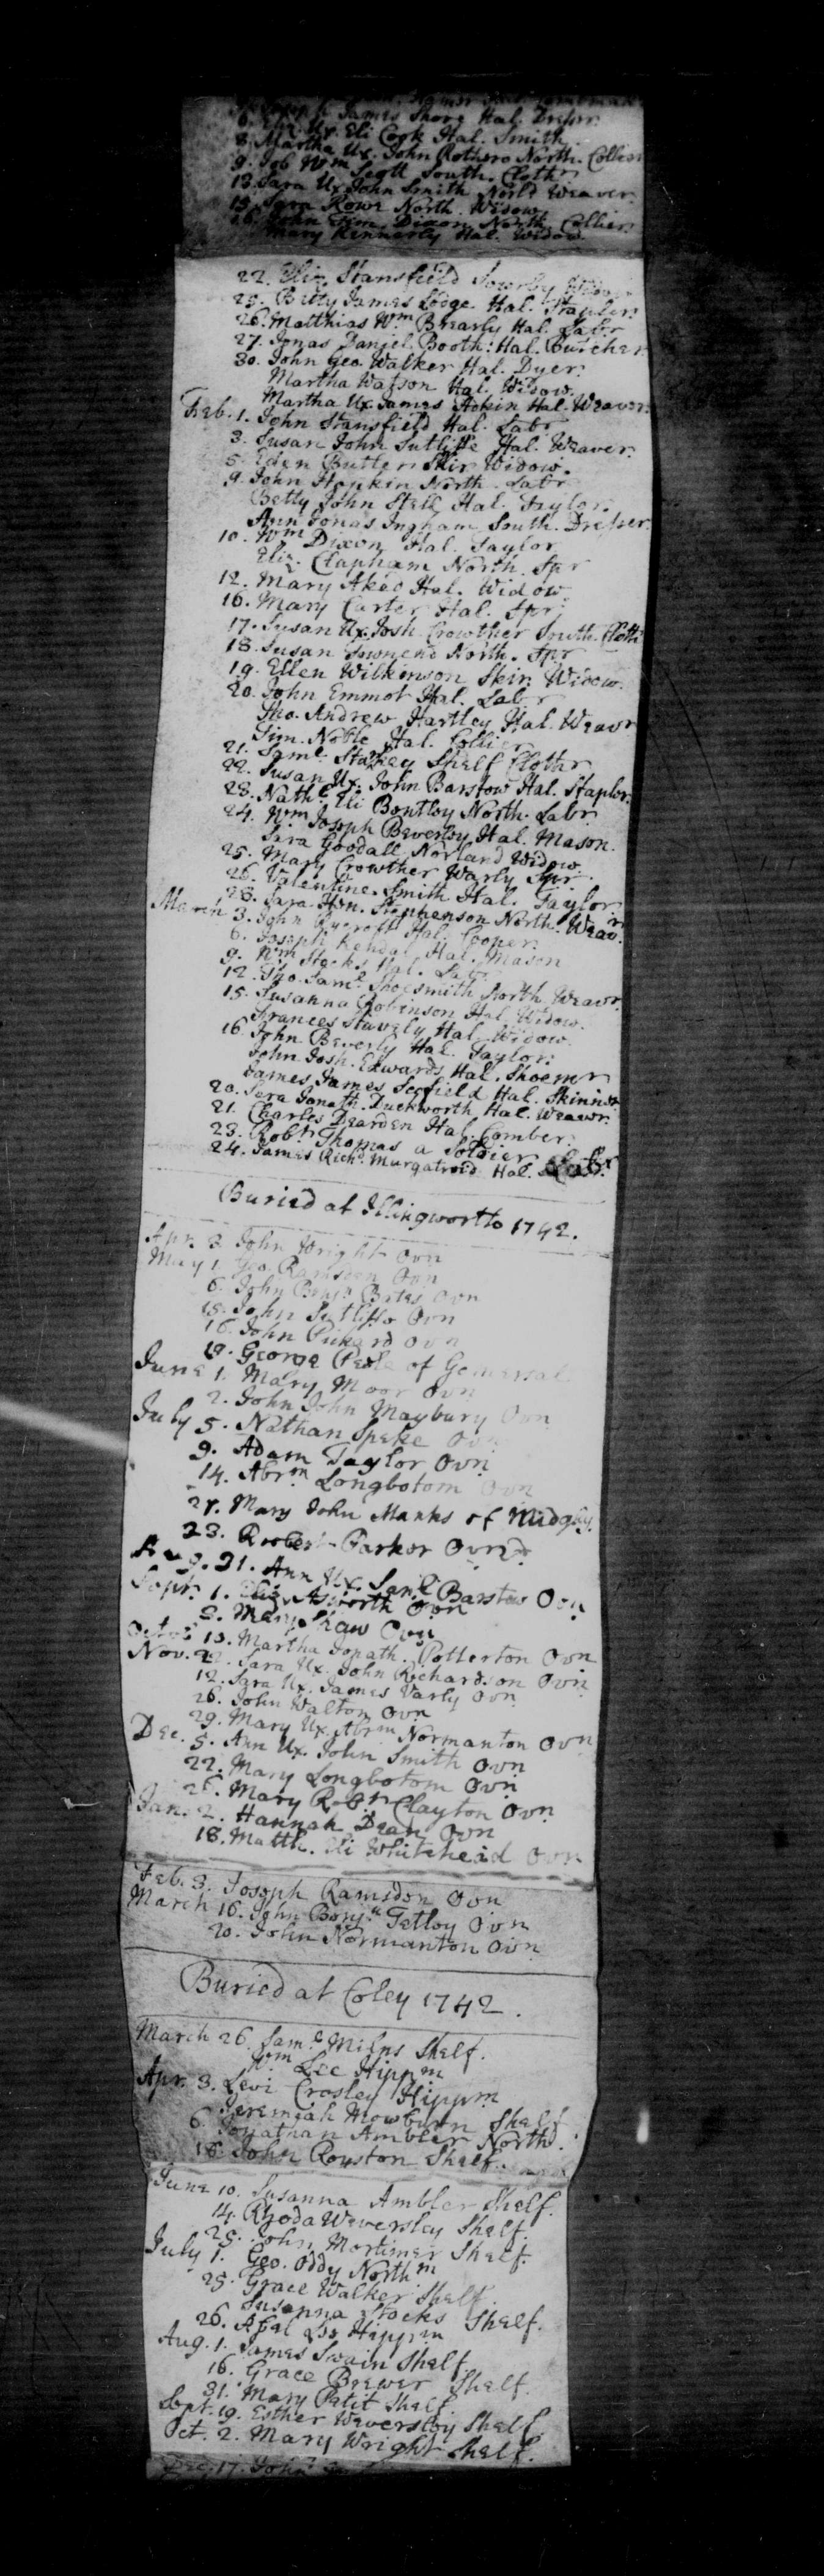 6. James Shore Hal. Dresser.
Ux. Eli Cook Hal. Smith.
8. Martha Ux. John Rothero North. Collier
9. Job Wm Scott South. Cloth
13. Sara Ux John Smith Norld Weaver
15. Sara Rowe North. Widow
16. John Dixon North. Collier
Mary Kennerly Hal. Widow
22. Eliz. Stansfield Sowerby
25. Betty James Lodge Hal. Stapler.
26. Matthias Wm Brearly Hal. Labr
27. Jonas Daniel Booth: Hal. Butcher
30. John Geo. Walker Hal. Dyer.
Martha Watson Hal. Widow.
Martha Ux. James Hal. Weaver.
Feb. 1. John Stansfield Hal. Labr
3. Susan John Sutliffe Hal. Weaver.
5. Eden Butler Skir. Widow.
9. John Hopkin North. Labr
Betty John Stell Hal. Taylor.
Ann Jonas Ingham South. Dresser.
10. Wm Dixon Hal. Taylor
Eliz. Clapham North. Spr
12. Mary Aked Hal. Widow.
16. Mary Carter Hal. Spr.
17. Susan Ux. Josh. Crowther South. Cloth
18. Susan Townend North. Spr
19. Ellen Wilkinson Skir. Widow.
20. John Emmot Hal. Labr
Tho. Andrew Hartley Hal. Weavr
Sim. Noble Hal. Collier
21. Saml. Starkey Shelf Clothr
22. Susan Ux. John Barstow Hal. Staplr.
23. Nathl Eli Bentley North. Labr.
24. Wm Joseph Beverley Hal. Mason.
Sara Goodall Norland Widow
25. Mary Crowther Warly Spr.
26. Valentine Smith Hal. Taylor
28. Sara Hen. Stephenson North. Weavr.
March 3. John Hal. Cooper.
6. Joseph Kendal Hal. Mason
9. Wm Stocks Hal. Labr
12. Tho. Saml Shoesmith North Weavr.
15. Susanna Robinson Hal. Widow.
Frances Stavely Hal. Widow.
16. John Beverly Hal. Taylor.
John Josh. Edwards Hal. Shoemr
James James Scofield Hal. Skinner
20. Sara Jonath. Duckworth Hal. Weavr.
21. Charles Dearden Hal. Comber.
23. Robt Thomas a Soldier
24. James Richd Murgatroid Hal. Labr.
Buried at Illingworth 1742.
Apr. 3 John Wright Ovn
May 1. Geo. Ramsden Ovn
6. John Benjn Bates Ovn
15. John Sutliffe Ovn
16. John Pickard Ovn
19. George Peele of Gomersal
June 1. Mary Moor Ovn
2. John John Maybury Ovn
July 5. Nathan Speke Ovn
9. Adam Taylor Ovn
14. Abrm Longbotom Ovn
27. Mary John Manks of Midgley.
23. Robert Parker Ovn
Aug. 31. Ann Ux. Saml Barstow Ovn
Sept. 1. Eliz. Asworth Ovn
2. Mary Shaw Ovn
Octor 13. Martha Jonath. Potterton Ovn
Nov. 2. Sara Ux. John Richardson Ovn
12. Sara Ux. James Varly Ovn
26. John Walton Ovn
29. Mary Ux. Abrm Normanton Ovn
Dec. 5. Ann Ux. John Smith Ovn
22. Mary Longbotom Ovn
26. Mary Robt Clayton Ovn
Jan. 2. Hannah Dean Ovn
18. Matth. Eli Whitehead Ovn
Feb. 3. Joseph Ramsden Ovn
March 16. John Benjn Tetley Ovn
20. John Normanton Ovn
Buried at Coley 1742.
March 26. Saml Milns Shelf.
Wm Lee Hippm
Apr. 3. Levi Crosley Hippm
Jeremiah Shelf
6. Jonathan Ambler North.
18. John Royston Shelf.
June 10. Susanna Ambler Shelf.
14. Rhoda Waversley Shelf.
25. John Mortimer Shelf.
July 1. Geo. Oddy Northm
25. Grace Walker Shelf.
Susanna Stocks Shelf.
26. Abel Lee Hippm
Aug. 1. James Swain Shelf
16. Grace Brewer Shelf.
31. Mary Petit Shelf
Sept. 19. Esther Waversley Shelf.
Oct. 2. Mary Wright Shelf.
Dec. 17. John